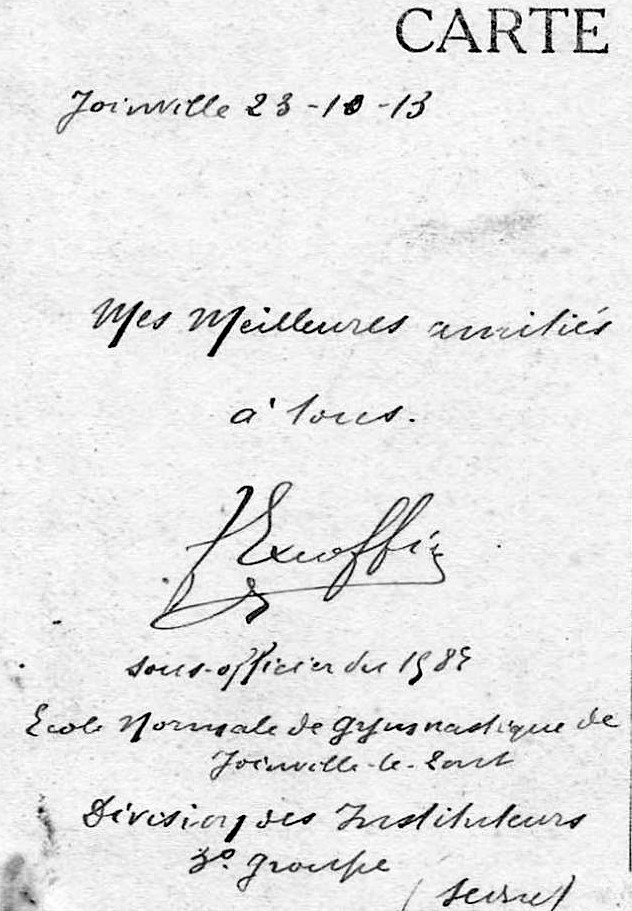 CARTE
Joinville 23-10-13
Mes Meilleures amitiés
à tous.
Excoffier
sous-officier du 158e
Ecole Normale de gymnastique de
Joinville-le-Pont
Division des Instituteurs
3e groupe
(Seine)